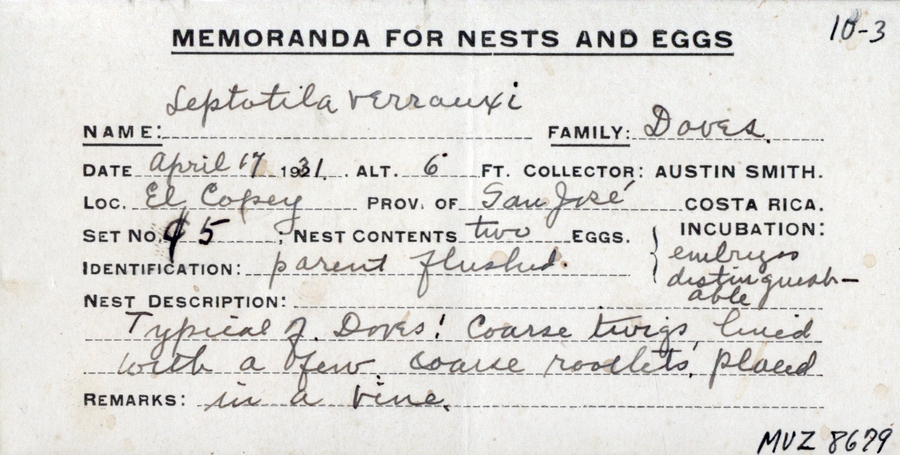 MEMORANDA FOR NESTS AND EGGS
10-3
NAME: Leptotila verrauxi FAMILY: Doves.
DATE April 17 1931. ALT. 6 FT. COLLECTOR: AUSTIN SMITH.
LOC. El Copey PROV. OF San José COSTA RICA.
SET NO. 5 ; NEST CONTENTS two EGGS. INCUBATION:
IDENTIFICATION: parent flushed. embryos
distinguish-
able
NEST DESCRIPTION:
Typical of Doves! Coarse twigs, lined
with a few coarse rootlets, placed
REMARKS: in a vine.
MVZ 8679